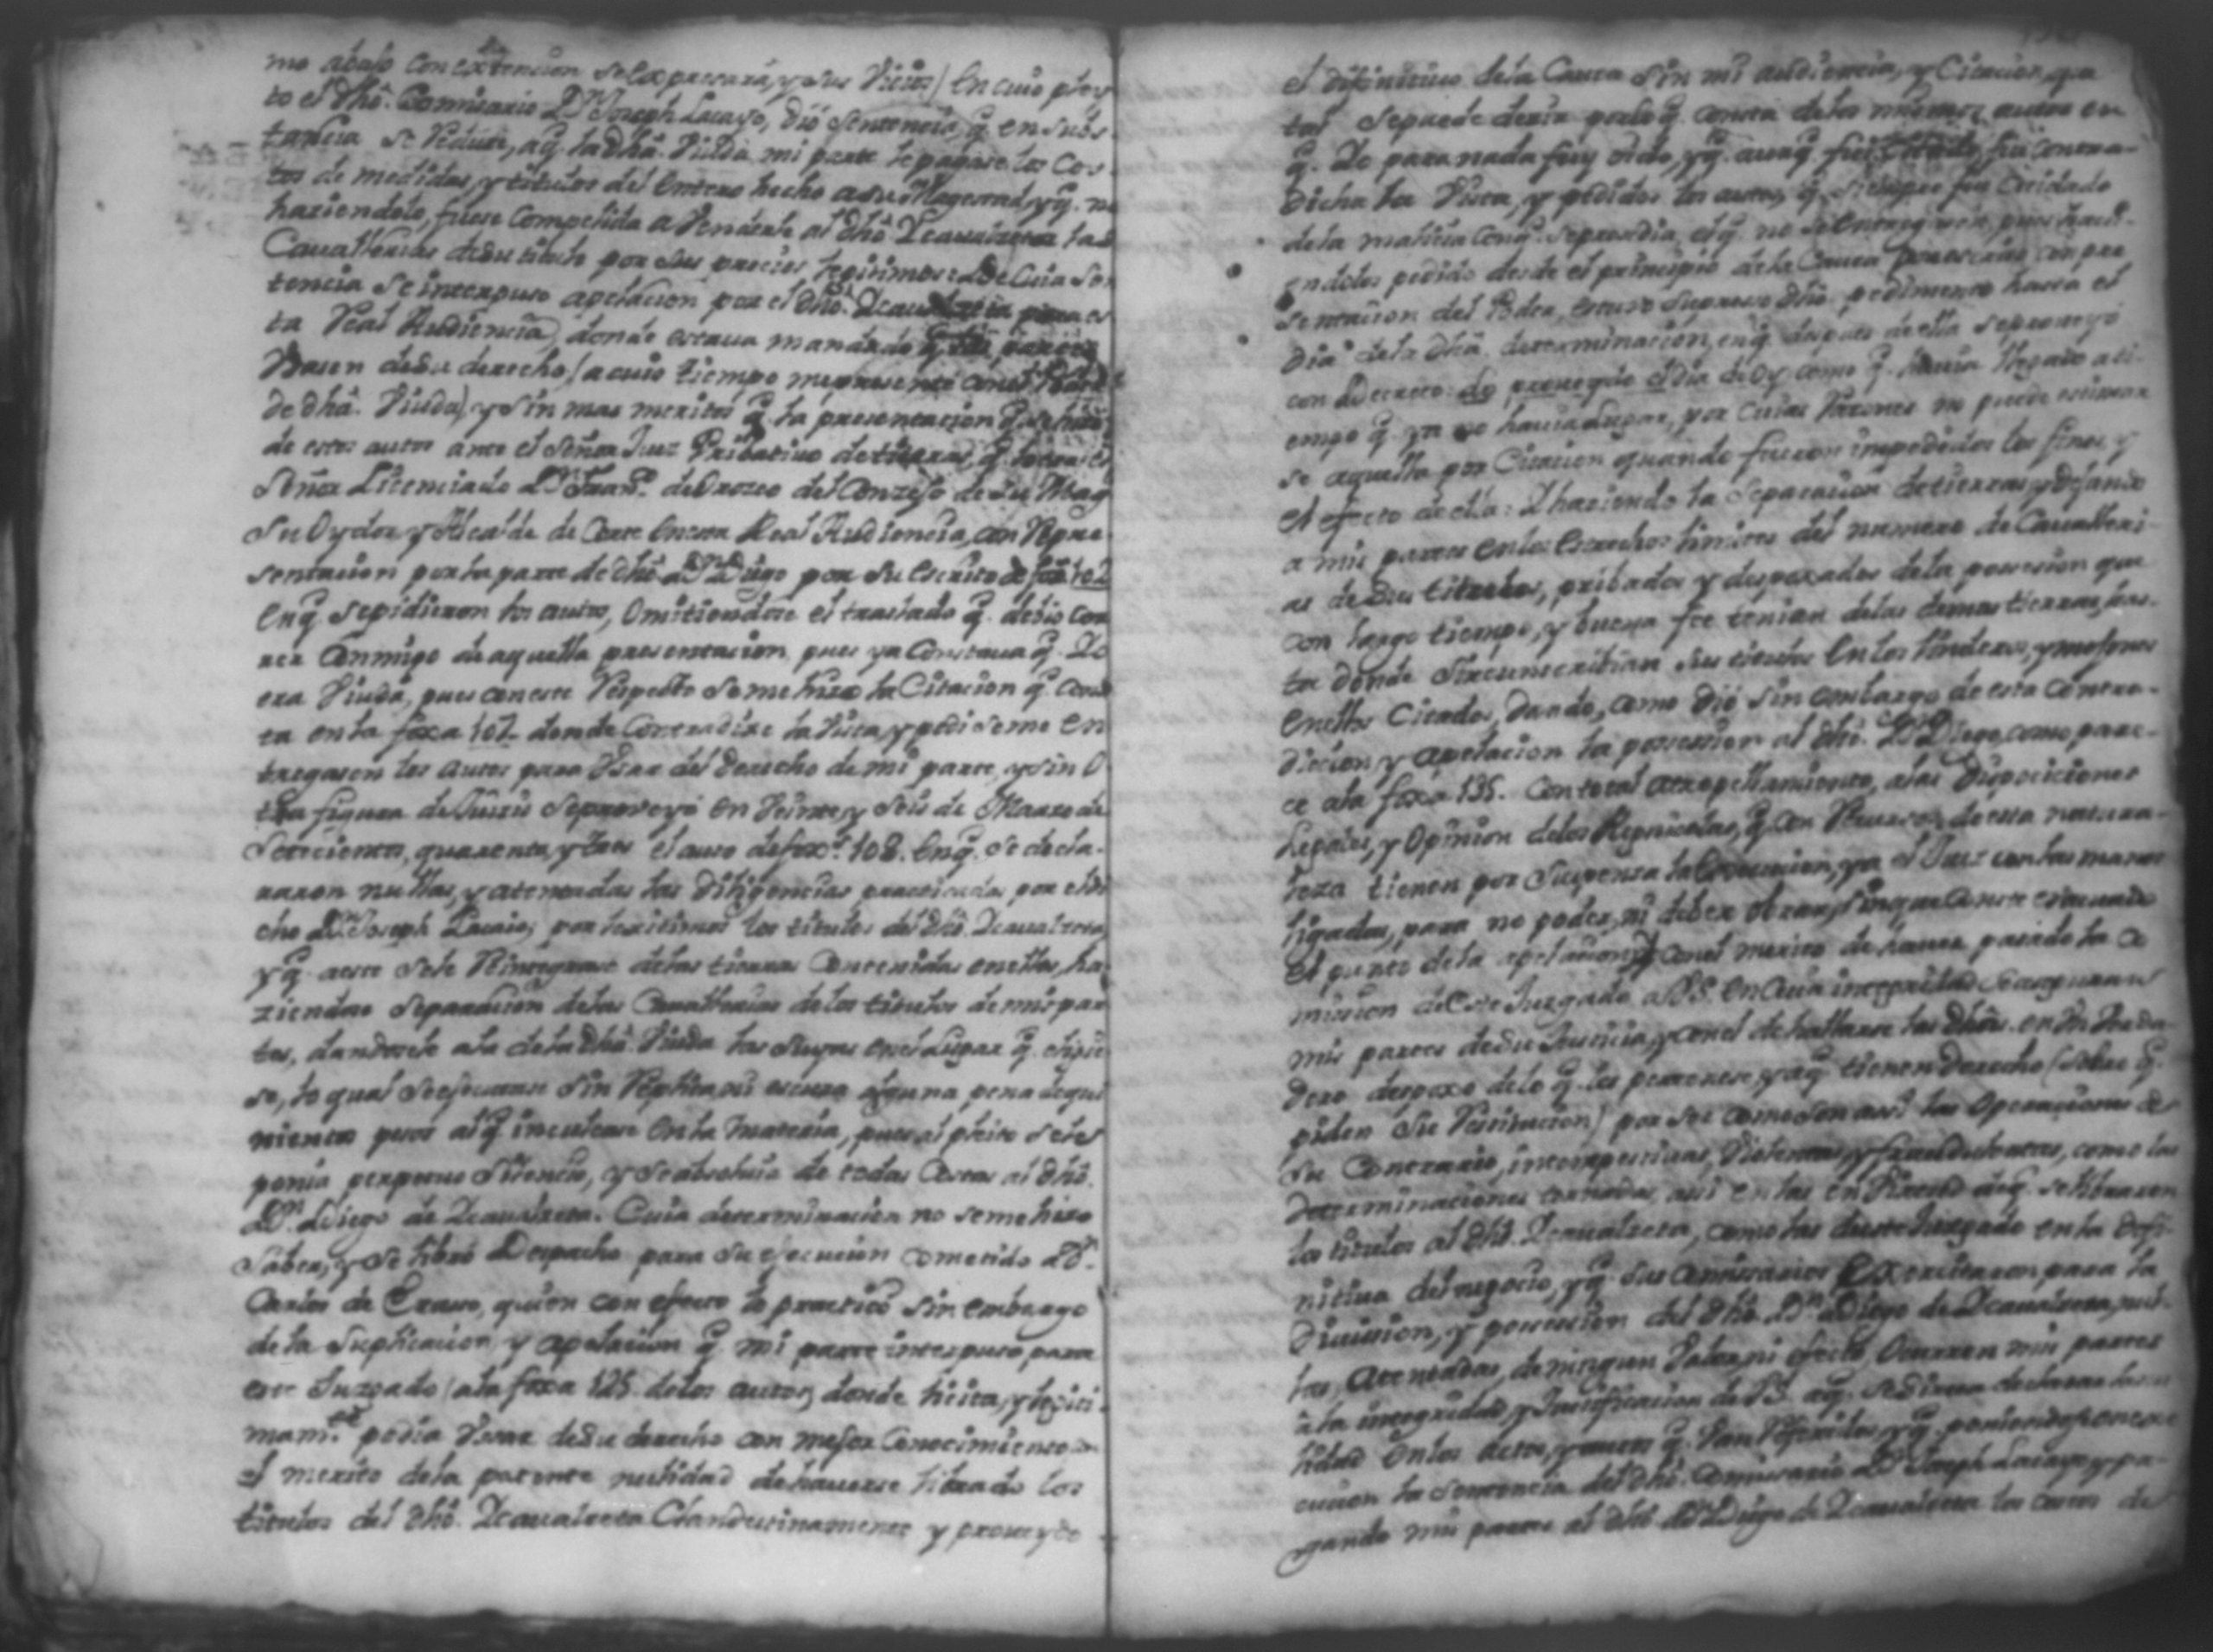 mo abajo con extencion se expresará, y sus Vicios) En cuio pley
to el dhô. Comissario Dn. Joseph Lacayo, dió Sentencia, q̃. en subs
tancia se reduce, a q̃. la dhâ. Viuda mi parte le pagase los Cos
tos de medidas, y titulos del Entero hecho a su Magestad, y q̃. no
haziendolo, fuese Compelida a Venderle al dhô. Zcaualzeta las
Cauallerias de su titulo por sus precios legitimos: De Cuia Sen
tencia se interpuso apelacion por el dhô. Zcaualzeta para es
ta Real Audiencia, donde estaua mandado q̃. las partes
Vsasen de su derecho (a cuio tiempo me presenté con el Poder
de dhâ. Viuda) y sin mas meritos q̃. la presentacion q̃. se hizo
de estos autos ante el Señor Juez Pribatiuo de tierras, q̃. lo era el
Señor Licenciado Dn. Franco. de Orozco del Conzejo de su Mag
su Oydor, y Alcalde de Corte en esta Real Audiencia, con Repre
sentacion por la parte de dhô. Dn. Diego por su escrito de fox 102
en q̃. se pidieron los autos, Omitiendose el traslado q̃. debió cor
rer Conmigo de aquella presentacion, pues ya Constaua q̃. Yo
era Viuda, pues con este Respecto se me hizo la Citacion q̃. cons
ta en la foxa 107 donde Contradixe la Vista, y pedi se me en
tregasen los autos para Vsar del derecho de mi parte, y sin o
tra figura de Juicio se proveyó en Veinte y Seis de Marzo de
Setecientos, quarenta, y tres el auto de foxs. 108. en q̃. se decla
raron nullas, y atentadas las diligencias practicadas por el di
cho Dn. Joseph Lacaio; por lexitimos los titulos del dhô. Zcaualzeta
y q̃. a este se le Reintegrase de las tierras Contenidas en ellos, ha
ziendose separacion de las Cauallerias de los titulos de mis par
tes, dandosele a la de la dhâ. Viuda las suyas en el Lugar q̃. elijie
se, lo qual se executase sin Replica ni escusa alguna, pena de qui
nientos pesos al q̃. inculcase en la materia, pues al pleito se les
ponia perpetuo Silencio, y se absoluia de todas Costas al dhô.
Dn. Diego de Zcaualzeta. Cuia determinacion no se me hizo
saber, y se libró Despacho para su execucion cometido a Dn.
Carlos de Erauso, quien con efecto lo practicó sin embargo
de la Suplicacion, y apelacion q̃. mi parte interpuso para
este Juzgado (a la foxa 125. de los autos, donde licita, y legiti
mamte. podia Vsar de su derecho con mejor Conocimiento
el merito de la patente nulidad de hauerse librado los
titulos del dhô. Zcaualzeta Clandestinamente y proueydo
el difinitiuo de la Causa sin mi audiencia, y Citacion, que
tal se puede dezir por lo q̃. consta de los mismos autos en
q̃. Yo para nada fuy oido, y q̃. aunq̃. fui Citado, fue contra
dicha la Vista, y pedidos los autos, q̃. siempre fue Cuidado
de la malicia con q̃. se procedia el q̃. no se entregasen, pues haui
endolos pedido desde el principio de la Causa con pre
sentacion del Poder, estuvo supreso dhô. pedimento hasta el
dia de la dhâ. determinacion, en q̃. despues de ella se proueyó
con Decreto: lo proueydo el dia de oy, como q̃. hauia llegado a ti
empo q̃. ya no hauia Lugar, por cuias Razones no puede estimar
se aquella por Citacion quando fueron impedidos los fines, y
el efecto de ella: Y haziendo la separacion de tierras, y dejando
a mis partes en los estrechos limites del numero de Caualleri
as de sus titulos, pribados y despojados de la posesion que
con largo tiempo, y buena fee tenian de las demas tierras, has
ta donde sircunscribian sus titulos en los linderos, y mojones
en ellos Citados, dando, como dió sin embargo de esta contra
diccion, y apelacion la posession al dhô. Dn. Diego, como pare
ce a la foxa 135. con total atropellamiento, a las disposiciones
Legales, y Opinion de los Regnicolas, q̃. con Recursos de esta natura
leza tienen por suspensa la execucion, y a el Juez con las manos
ligadas, para no poder, ni deber obrar, sin que Conste euacuado
el punto de la apelacion: Y con el merito de hauer pasado la co
mision de este Juzgado a V.S. en cuia integridad se aseguran
mis partes de su Justicia, y con el de hallarse las dhâs. en Verda
dero despojo de lo q̃. les pertenese, y a q̃. tienen derecho (sobre q̃.
piden su Restitucion) por ser como son assi las Operaciones de
su Contrario, intempestiuas, Violentas, y fraudulentas, como las
determinaciones tomadas, assi en las en Virtud de q̃. se libraron
los titulos al dhô. Zcaualzeta, como las de este Juzgado en la defi
nitiua del negocio, y q̃. sus Comissarios executaron para la
Diuision, y possession del dhô. Dn. Diego de Zcaualzeta, nul
las, Atentadas, de ningun Valor, ni efecto, Ocurren mis partes
a la integridad, y Justificacion de V.S. a q̃. se sirua declarar la nu
lidad en los autos, y autos q̃. Van Referidos, y q̃. poniendose en exe
cucion la sentencia del dhô. Comissario Dn. Joseph Lacayo, y pa
gando mis partes al dhô. Dn. Diego de Zcaualzeta los costos de